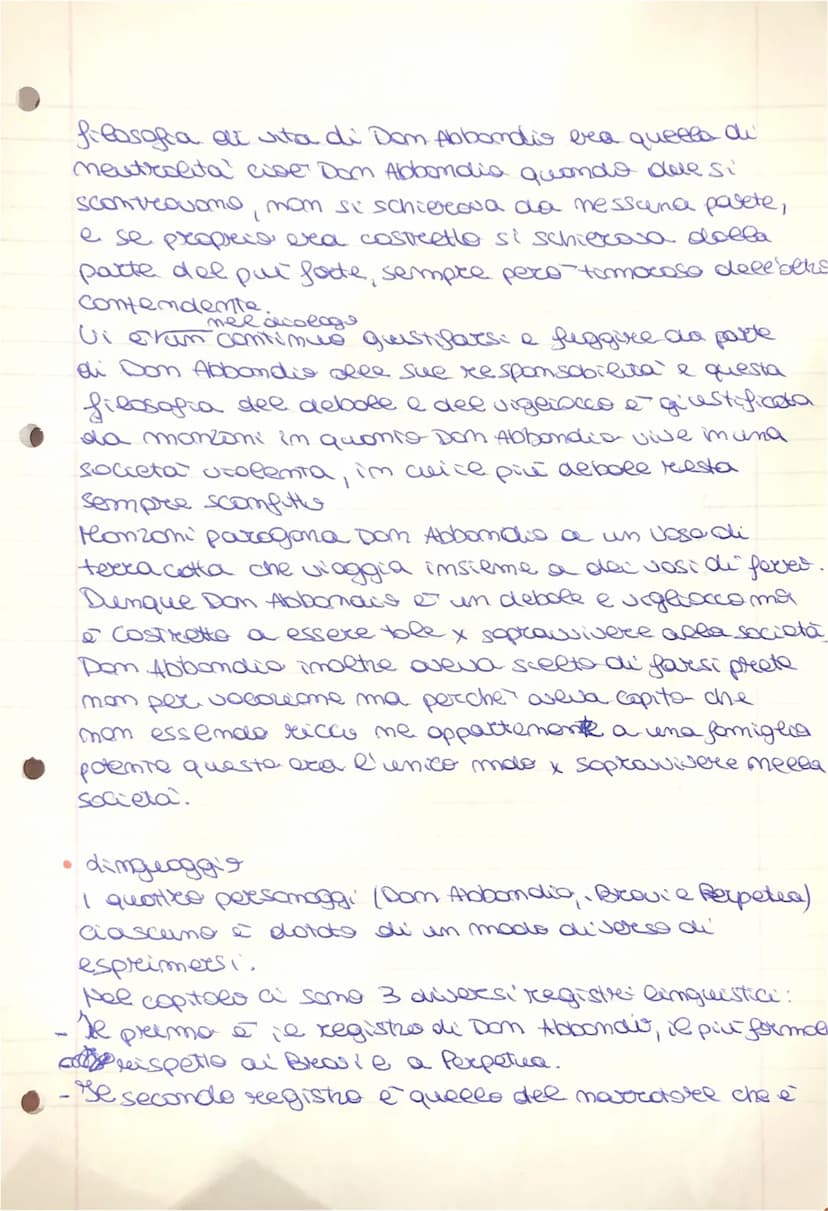 filosofia di vita di Don Abbondio era quella di
neutralità cioè Don Abbondio quando due si
scontravano, non si schierava da nessuna parte,
e se proprio era costretto si schierava dalla
parte del più forte, sempre però timoroso dell'altro
contendente.
nel dialogo
Vi continuo giustifarsi e fuggire da parte
di Don Abbondio alle sue responsabilità e questa
filosofia del debole e del vigliacco è giustificata
da manzoni in quanto Don Abbondio vive in una
società violenta, in cui il più debole resta
sempre sconfitto
Manzoni paragona Don Abbondio a un vaso di
terra cotta che viaggia insieme a dei vasi di ferro.
Dunque Don Abbondio è un debole e vigliacco ma
è costretto a essere tale x sopravvivere alla società
Don Abbondio inoltre aveva scelto di farsi prete
non per vocazione ma perchè aveva capito che
non essendo ricco ne appartenente a una famiglia
potente questo era l'unico modo x sopravvivere nella
società.
• Linguaggio
I quattro personaggi (Don Abbondio, Bravi e Perpetua)
ciascuno è dotato di un modo diverso di
esprimersi.
Nel capitolo ci sono 3 diversi registri linguistici:
- Il primo è il registro di Don Abbondio, il più formale
rispetto ai Bravi e a Perpetua.
- Il secondo registro è quello del narratore che è